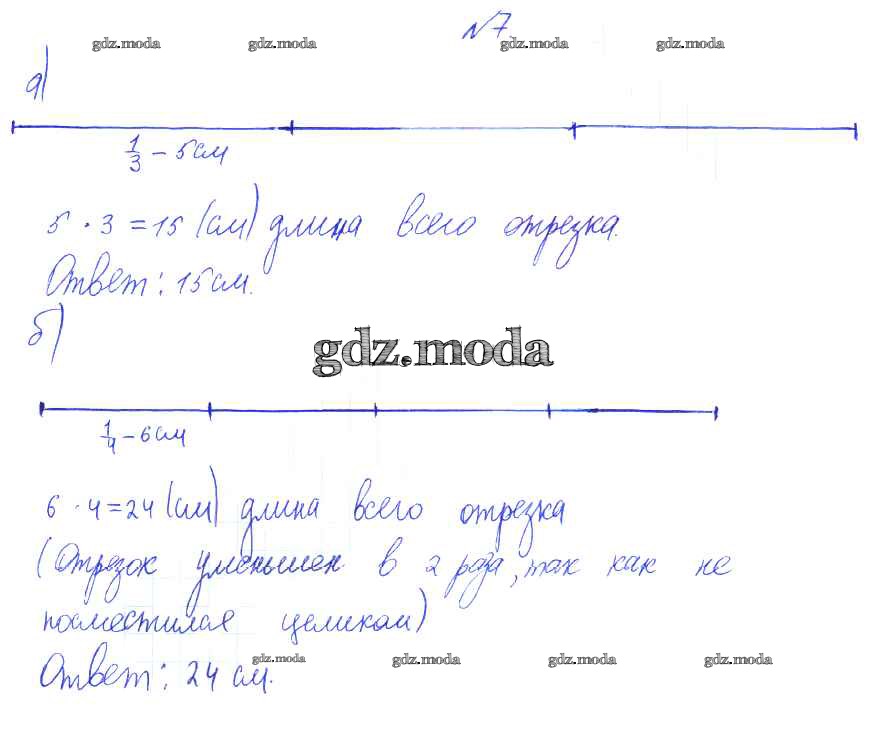 №7
gdz.moda gdz.moda gdz.moda gdz.moda
а)
1/3 - 5 см
5 · 3 = 15 (см) длина всего отрезка.
Ответ: 15 см.
б)
gdz.moda
1/4 - 6 см
6 · 4 = 24 (см) длина всего отрезка
(Отрезок уменьшен в 2 раза, так как не
поместился целиком)
Ответ: 24 см.
gdz.moda gdz.moda gdz.moda gdz.moda